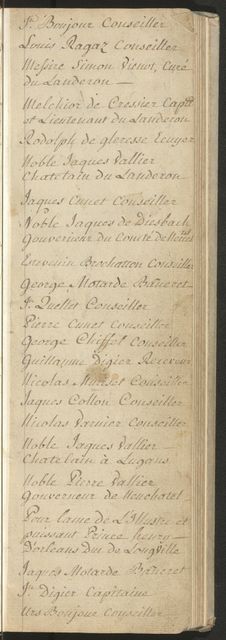 Js. Bonjour Conseiller
Louis Ragaz Conseiller
Messire Simon Vienot, Curé
du Landeron
Melchior de Cressier Capit
et Lieutenant du Landeron
Rodolph de gleresse Ecuyer
Noble Jaques Vallier
Chatelain du Landeron
Jaques Cunet Conseiller
Noble Jaques de Diesbach
Gouverneur du Comté de
Estevenin Brochatton Conseiller
George Motarde Baneret
Js. Quellet Conseiller
Pierre Cunet Conseiller
George Chiffel Conseiller
Guillaume Digier Receveur
Nicolas Muriset Conseiller
Jaques Collon Conseiller
Nicolas Varnier Conseiller
Noble Jaques Vallier
Chatelain à
Noble Pierre Vallier
Gouverneur de Neuchatel
Pour lame de L'Illustre et
puissant Prince henry
Dorleans duc de Longville
Jaques Motarde Baneret
Js. Digier Capitaine
Urs Bonjour Conseiller